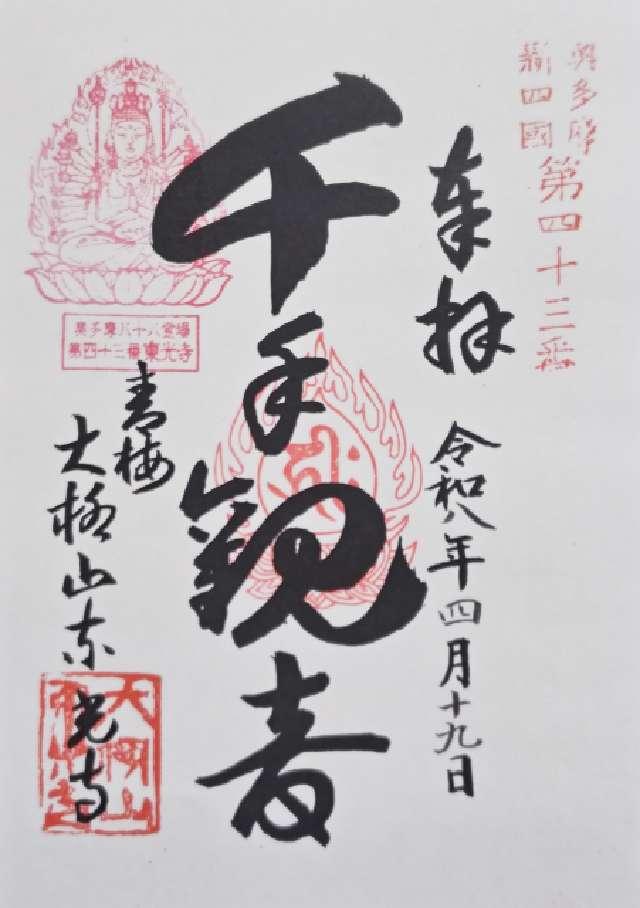 奥多摩
新四國
第四十三番
奉拝
令和八年四月十九日
千手観音
奥多摩八十八霊場
第四十三番東光寺
青梅
大柳山東光寺
大柳山
東光寺